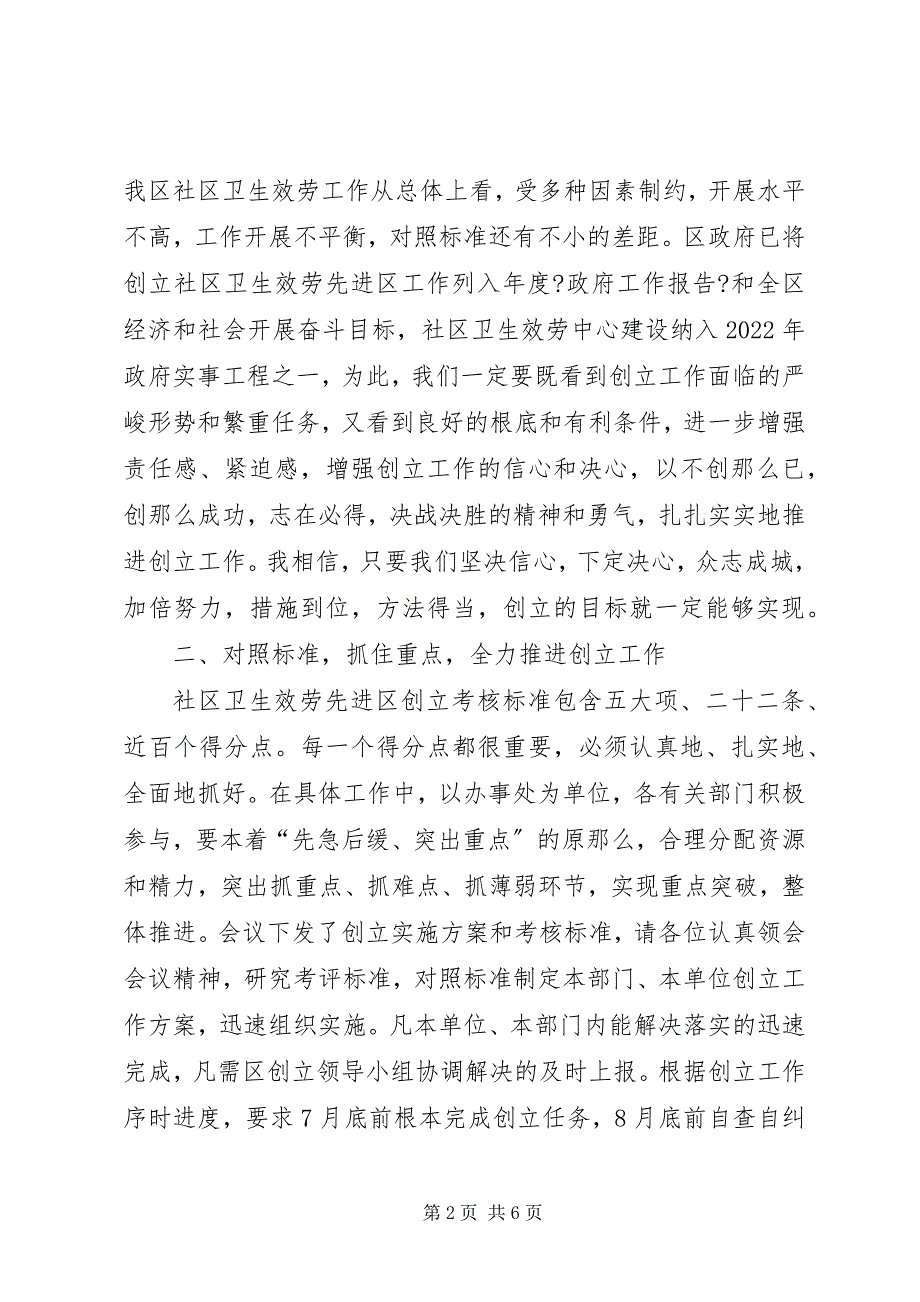 我区社区卫生效劳工作从总体上看，受多种因素制约，开展水平
不高，工作开展不平衡，对照标准还有不小的差距。区政府已将
创立社区卫生效劳先进区工作列入年度?政府工作报告?和全区
经济和社会开展奋斗目标，社区卫生效劳中心建设纳入 2022 年
政府实事工程之一，为此，我们一定要既看到创立工作面临的严
峻形势和繁重任务，又看到良好的根底和有利条件，进一步增强
责任感、紧迫感，增强创立工作的信心和决心，以不创那么已，
创那么成功，志在必得，决战决胜的精神和勇气，扎扎实实地推
进创立工作。我相信，只要我们坚决信心，下定决心，众志成城，
加倍努力，措施到位，方法得当，创立的目标就一定能够实现。
二、对照标准，抓住重点，全力推进创立工作
社区卫生效劳先进区创立考核标准包含五大项、二十二条、
近百个得分点。每一个得分点都很重要，必须认真地、扎实地、
全面地抓好。在具体工作中，以办事处为单位，各有关部门积极
参与，要本着“先急后缓、突出重点〞的原那么，合理分配资源
和精力，突出抓重点、抓难点、抓薄弱环节，实现重点突破，整
体推进。会议下发了创立实施方案和考核标准，请各位认真领会
会议精神，研究考评标准，对照标准制定本部门、本单位创立工
作方案，迅速组织实施。凡本单位、本部门内能解决落实的迅速
完成，凡需区创立领导小组协调解决的及时上报。根据创立工作
序时进度，要求 7 月底前根本完成创立任务，8 月底前自查自纠
第 2 页 共 6 页